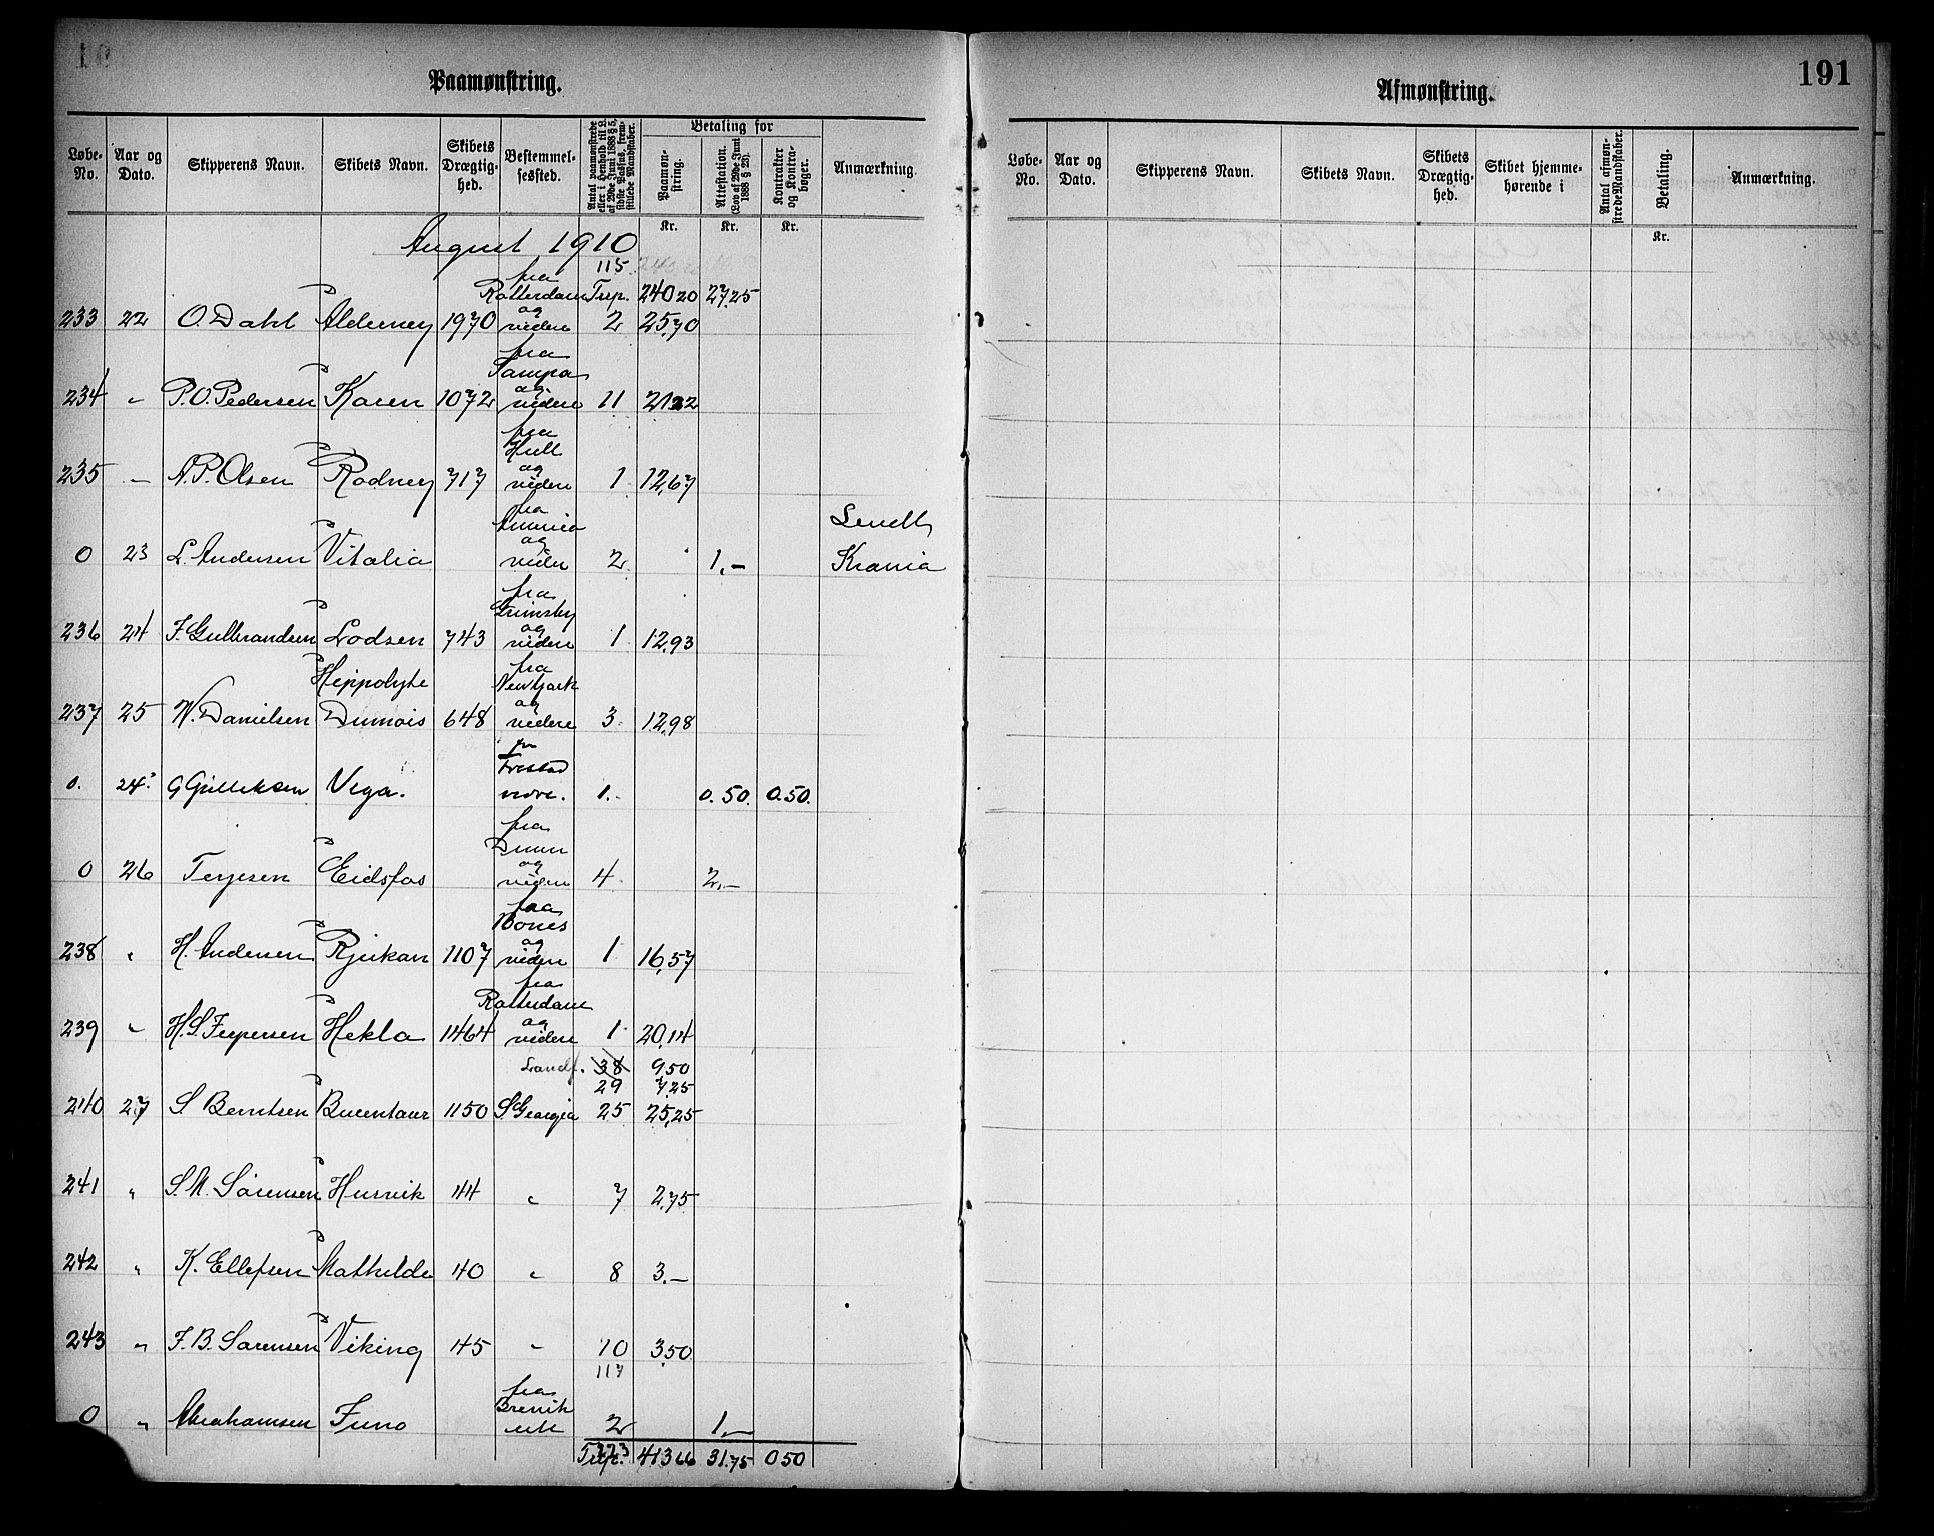 Paamønstring.
Løbe-No. Aar og Dato. Skipperens Navn. Skibets Navn. Skibets Drægtig-hed. Bestemmel-sessted. Antal paamønstrede eller i Henhold til L. af 29de Juni 1888 § 5, sidste Passus, frem-stillede Mandskaber. Betaling for Paamøn-string. Attestation. (Lov af 29de Juni 1888 § 23). Kontrakter og Kontra-bøger. Anmærkning.
Kr. Kr. Kr.
August 1910
115
fra
Rotterdam Trsp. 240 20 27,25
og
233 22 O. Dahl Alderney 1970 videre 2 25,70
fra
Tampa
og
234 " P.O. Pedersen Karen 1072 videre 11 21 22
fra
Hull
og
235 " A.P. Olsen Rodney 717 videre 1 12,67
fra
America Sendt
og
0 23 L. Andersen Vitalia vider 2 1,- Krania
fra
Grimsby
og
236 24 F. Gulbrandsen Lodsen 743 videre 1 12,93
Hippolyte fra
Newyork
og
237 25 W. Danielsen Dumois 648 videre 3 12,98
fra
Frestad
0. 24. G Gulliksen Vega. vidre. 1.- 0.50. 0.50.
fra
Drmn
og
0 26 Terjesen Eidsfos videre 4 2,-
fra
Bones
og
238 " H. Andersen Rjukan 1107 videre 1 16,57
fra
Rotterdam
og
239 " H.S. Jespersen Hekla 1464 videre 1 20,14
Landf. 38 9,50
29 7,25
240 27 S Berntsen Bucentaur 1150 S Georgia 25 25,25
241 " S.M. Sørensen Husvik 44 " 7 2,75
242 " K. Ellefsen Mathilde 40 " 8 3.-
243 " F.B. Sørensen Viking 45 " 10 3,50
117
fra
Brevik
0 " Abrahamsen Juno ut 2 1,-
Trsp. 413 66 31.75 0 50
Afmønstring. 191
Løbe-No. Aar og Dato. Skipperens Navn. Skibets Navn. Skibets Drægtig-hed. Skibet hjemme-hørende i Antal afmøn-strede Mandskaber. Betaling. Anmærkning.
Kr.